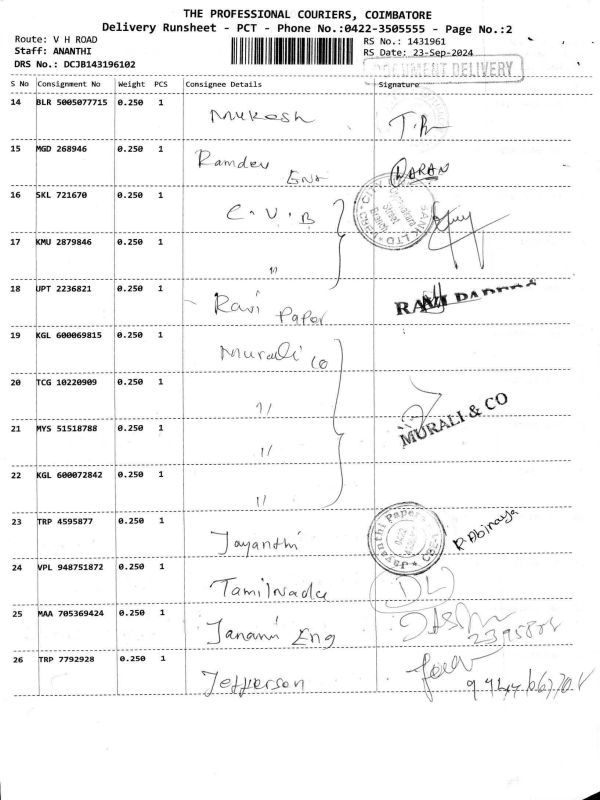 THE PROFESSIONAL COURIERS, COIMBATORE
Delivery Runsheet - PCT - Phone No.:0422-3505555 - Page No.:2
Route: V H ROAD
RS No.: 1431961
Staff: ANANTHI
RS Date: 23-Sep-2024
DRS No.: DCJB143196102
DOCUMENT DELIVERY
S No Consignment No Weight PCS Consignee Details Signature
14 BLR 5005077715 0.250 1 Mukesh
15 MGD 268946 0.250 1 Ramdev Ent
16 SKL 721670 0.250 1 C.V.B
17 KMU 2879846 0.250 1 "
18 UPT 2236821 0.250 1 Ravi Paper RAVI PAPERS
19 KGL 600069815 0.250 1 Murali Co
20 TCG 10220909 0.250 1 "
21 MYS 51518788 0.250 1 " MURALI & CO
22 KGL 600072842 0.250 1 "
23 TRP 4595877 0.250 1 Jayanthi R. Abinaya
24 VPL 948751872 0.250 1 Tamilnadu DL
25 MAA 705369424 0.250 1 Janani Eng
26 TRP 7792928 0.250 1 Jefferson